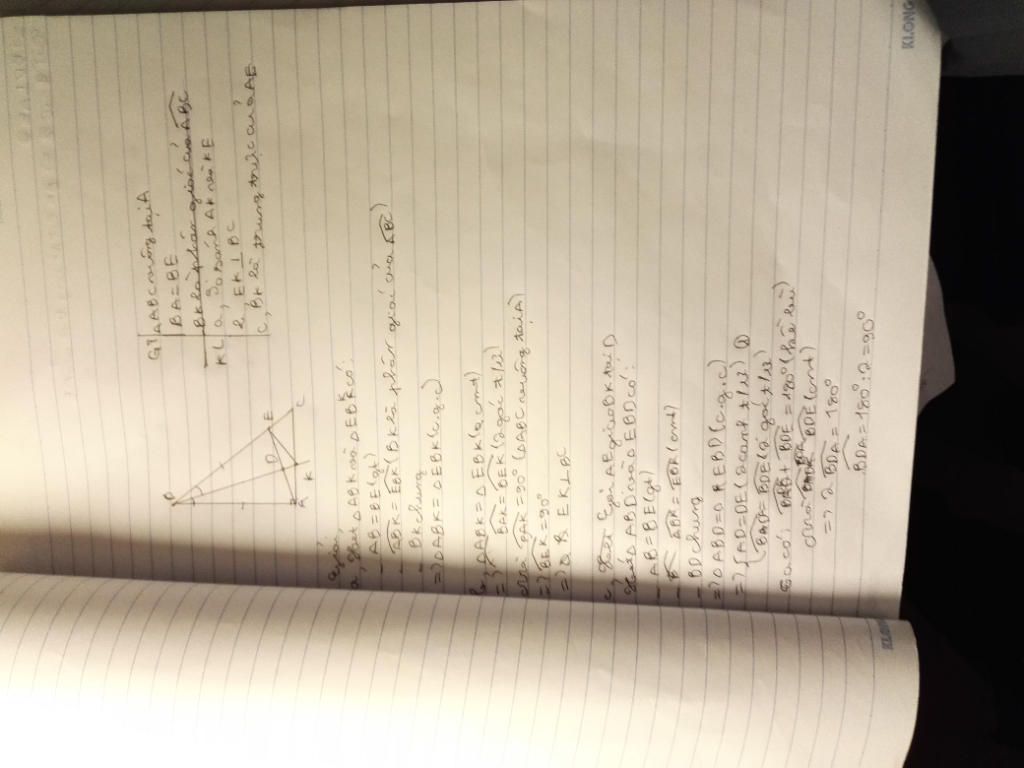 GT | ΔABC vuông tại A
BA = BE
BK là phân giác của ABC
KL | a, So sánh AK và KE
b, EK ⊥ BC
c, BK là trung trực của AE
B
D
E
A
K
C
Giải
a, Xét ΔABK và ΔEBK có:
- AB = BE (gt)
- ABK = EBK (BK là phân giác của ABC)
- BK chung
=> ΔABK = ΔEBK (c.g.c)
b, ΔABK = ΔEBK (a, cmt)
=> BAK = BEK (2 góc t/ứ)
mà BAK = 90° (ΔABC vuông tại A)
=> BEK = 90°
=> EK ⊥ BC
c, Gọi AE giao BK tại D
Xét ΔABD và ΔEBD có:
- AB = BE (gt)
- ABK = EBK (cmt)
- BD chung
=> ΔABD = ΔEBD (c.g.c)
=> { AD = DE (2 cạnh t/ứ) ①
BDA = BDE (2 góc t/ứ)
Ta có: BDA + BDE = 180° (kề bù)
mà BDA = BDE (cmt)
=> 2 BDA = 180°
BDA = 180° : 2 = 90°
KLONG
KLONG